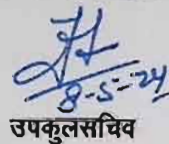 8-5-24
उपकुलसचिव